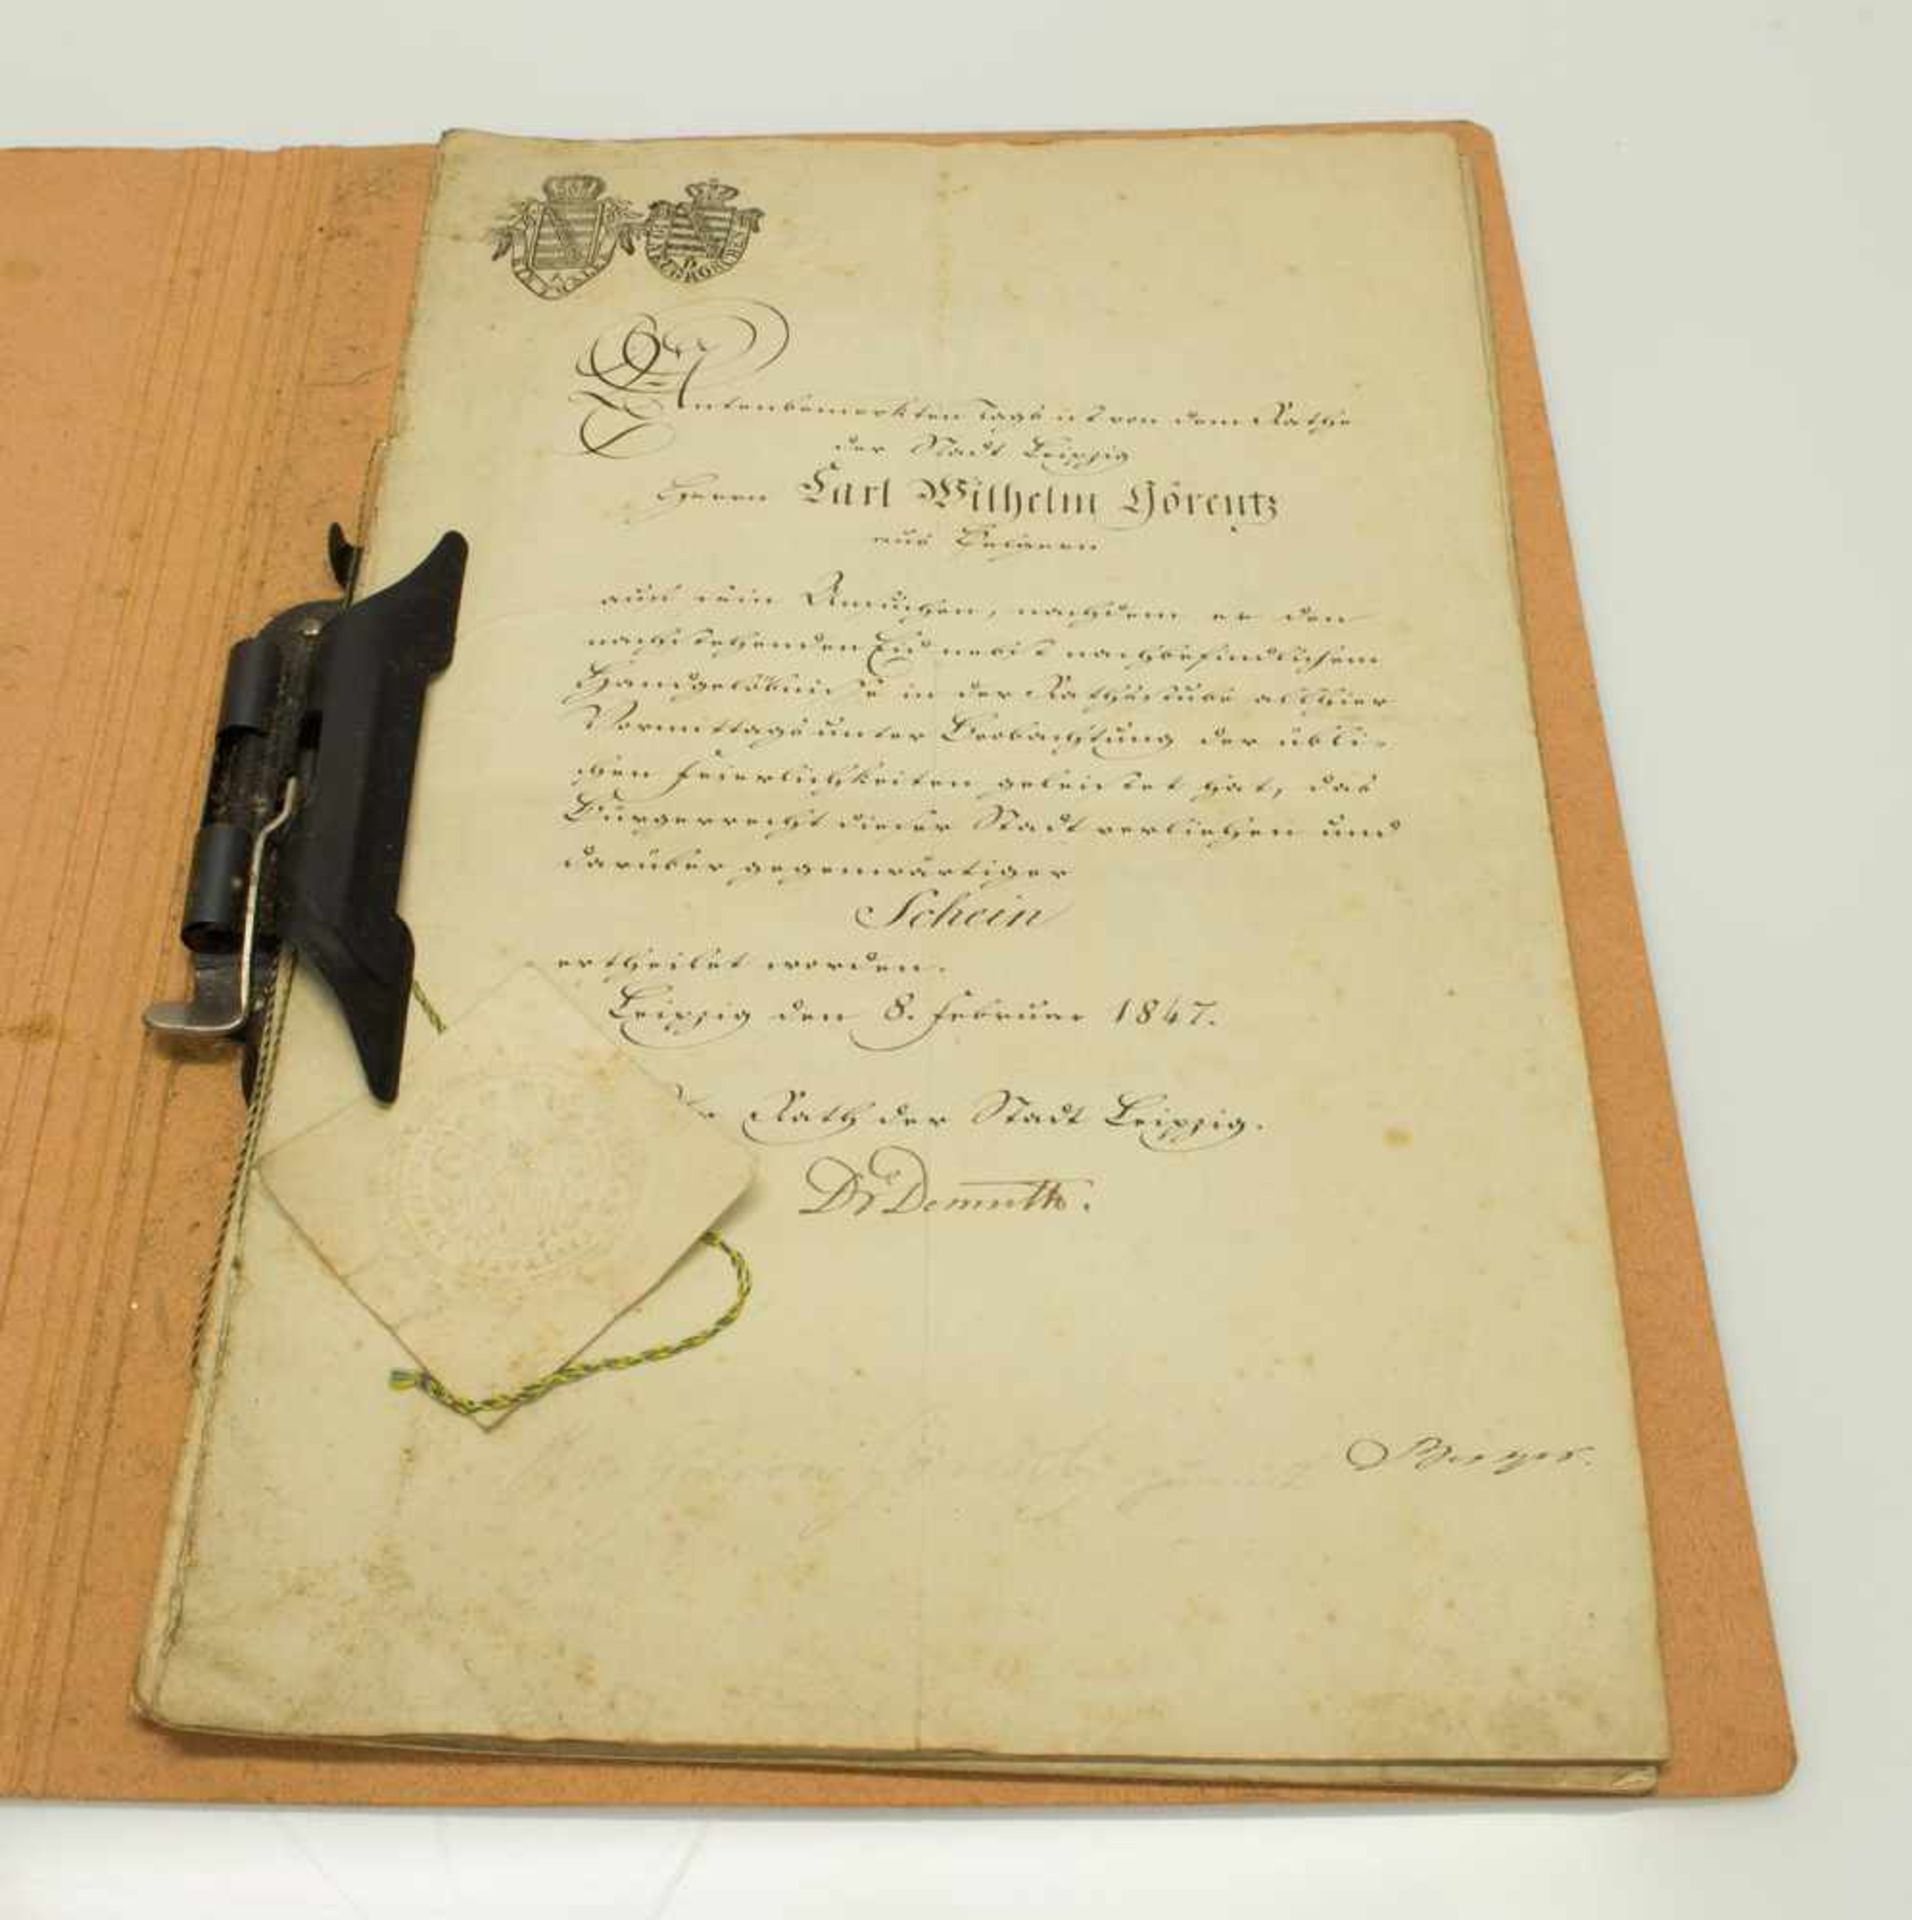 Untenbemerkten Tags ist von dem Rathe
der Stadt Leipzig
Herrn Carl Wilhelm Görentz
aus Belgern
auf sein Ansuchen, nachdem er den
nachstehenden Eid nebst nachbefindlichem
Handgelöbniße in der Rathsstube allhier
Vormittags unter Beobachtung der übli-
chen Feierlichkeiten geleistet hat, das
Bürgerrecht dieser Stadt verliehen und
darüber gegenwärtiger
Schein
ertheilet worden.
Leipzig den 8. Februar 1847.
Der Rath der Stadt Leipzig.
Dr Demuth.